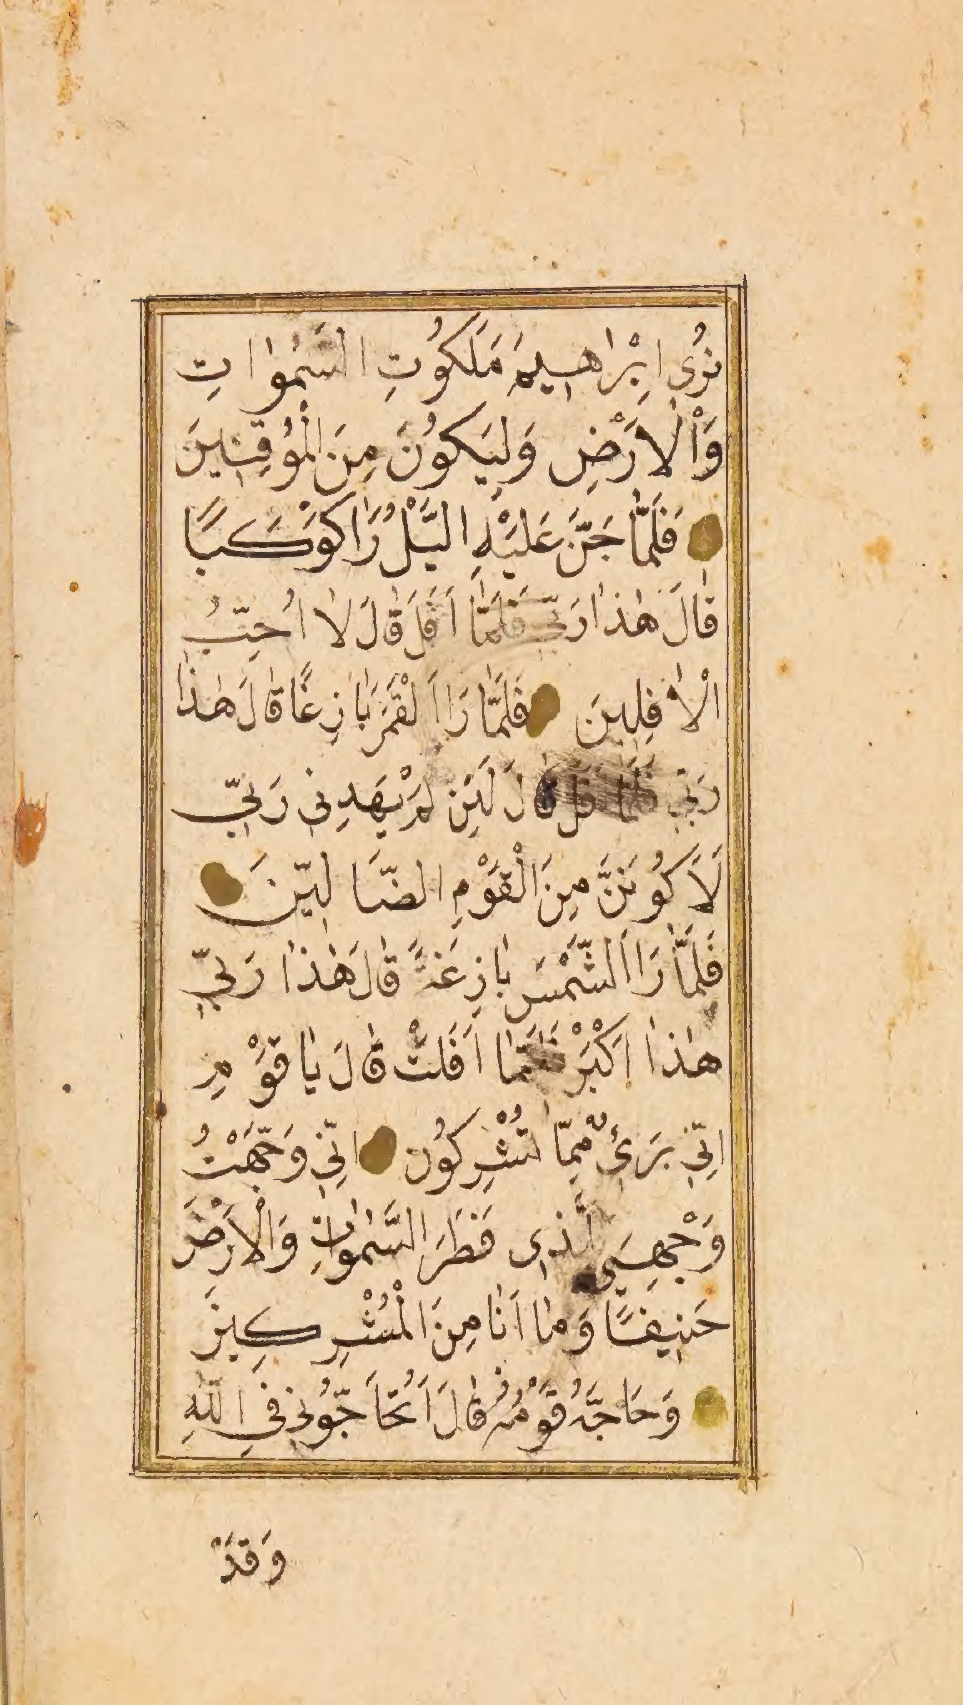 نُرِي اِبْرَاهِيمَ مَلَكُوتِ السَّمٰوَاتِ
وَالْاَرْضِ وَلِيَكُونَ مِنَ الْمُوقِنِينَ
فَلَمَّا جَنَّ عَلَيْهِ الَّيْلُ رَاٰ كَوْكَبًا
قَالَ هٰذَا رَبِّي فَلَمَّا اَفَلَ قَالَ لَا اُحِبُّ
الْاٰفِلِينَ فَلَمَّا رَاَ الْقَمَرَ بَازِغًا قَالَ هٰذَا
رَبِّي فَلَمَّا اَفَلَ قَالَ لَئِنْ لَمْ يَهْدِنِي رَبِّي
لَاَكُونَنَّ مِنَ الْقَوْمِ الضَّالِّينَ
فَلَمَّا رَاَ الشَّمْسَ بَازِغَةً قَالَ هٰذَا رَبِّي
هٰذَا اَكْبَرُ فَلَمَّا اَفَلَتْ قَالَ يَا قَوْمِ
اِنِّي بَرِيءٌ مِمَّا تُشْرِكُونَ اِنِّي وَجَّهْتُ
وَجْهِيَ لِلَّذِي فَطَرَ السَّمٰوَاتِ وَالْاَرْضَ
حَنِيفًا وَمَا اَنَا مِنَ الْمُشْرِكِينَ
وَحَاجَّهُ قَوْمُهُ قَالَ اَتُحَاجُّونِّي فِي اللّٰهِ
وَقَدْ